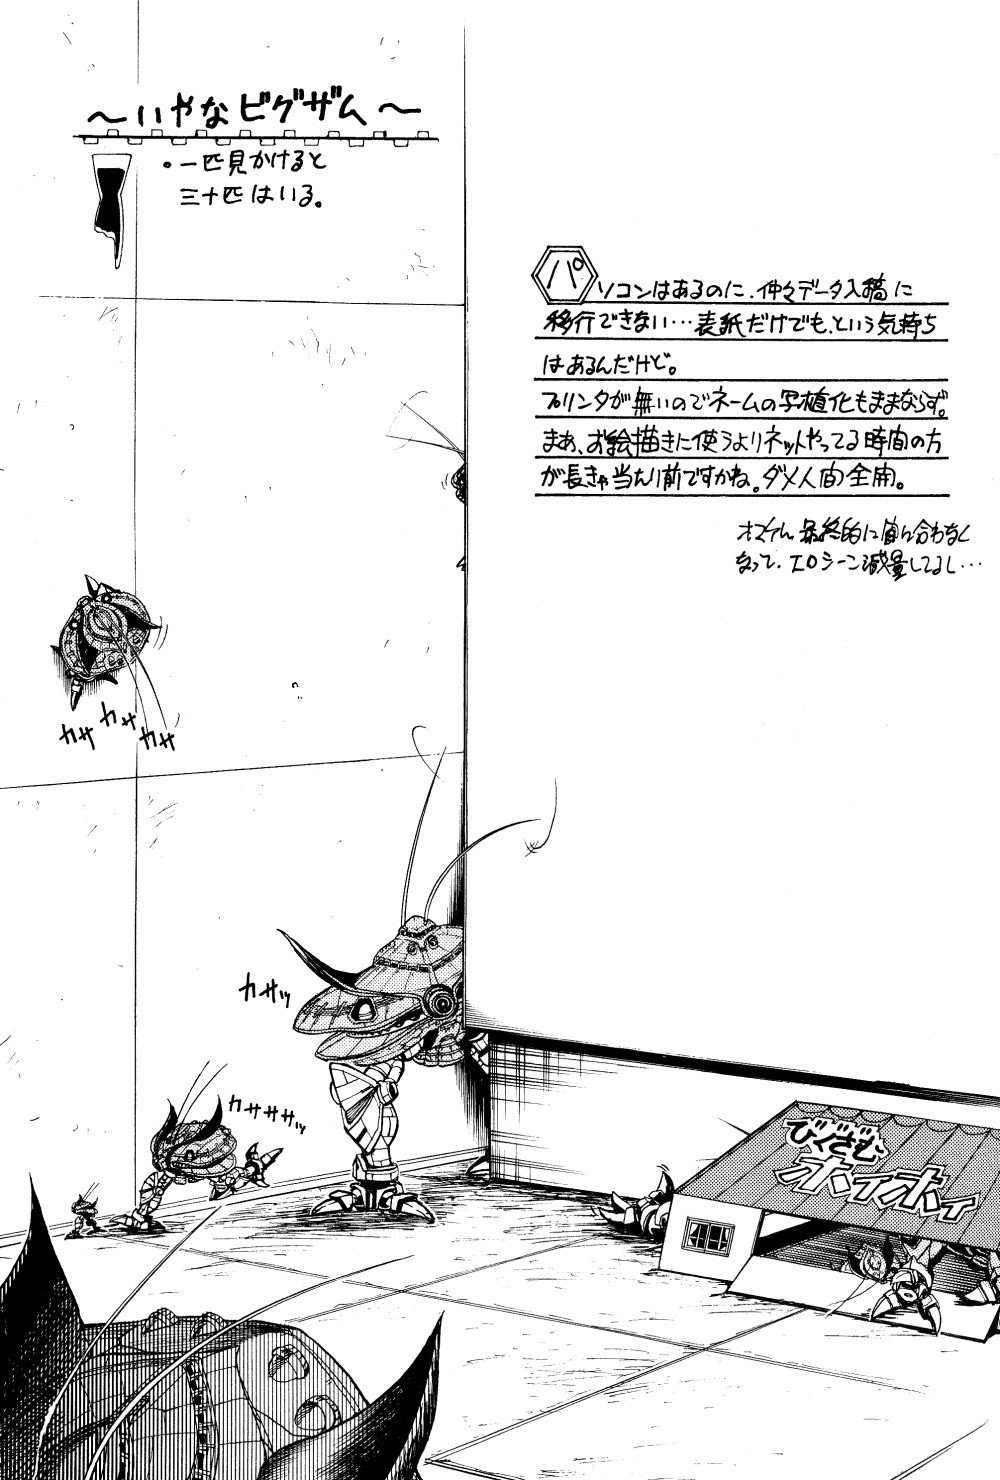 ～いやなビグザム～
・一匹見かけると
三十匹はいる。
パソコンはあるのに、仲々データ入稿に
移行できない…表紙だけでも、という気持ち
はあるんだけど。
プリンタが無いのでネームの写植化もままならず。
まあ、お絵描きに使うよりネットやってる時間の方
が長きゃ当たり前ですかね。ダメ人間全開。
最終的に間に合わなく
なって、エロシーン減量してるし…
カサ
カサ
カサ
カサッ
カササササッ
びぐざむ
ホイホイ